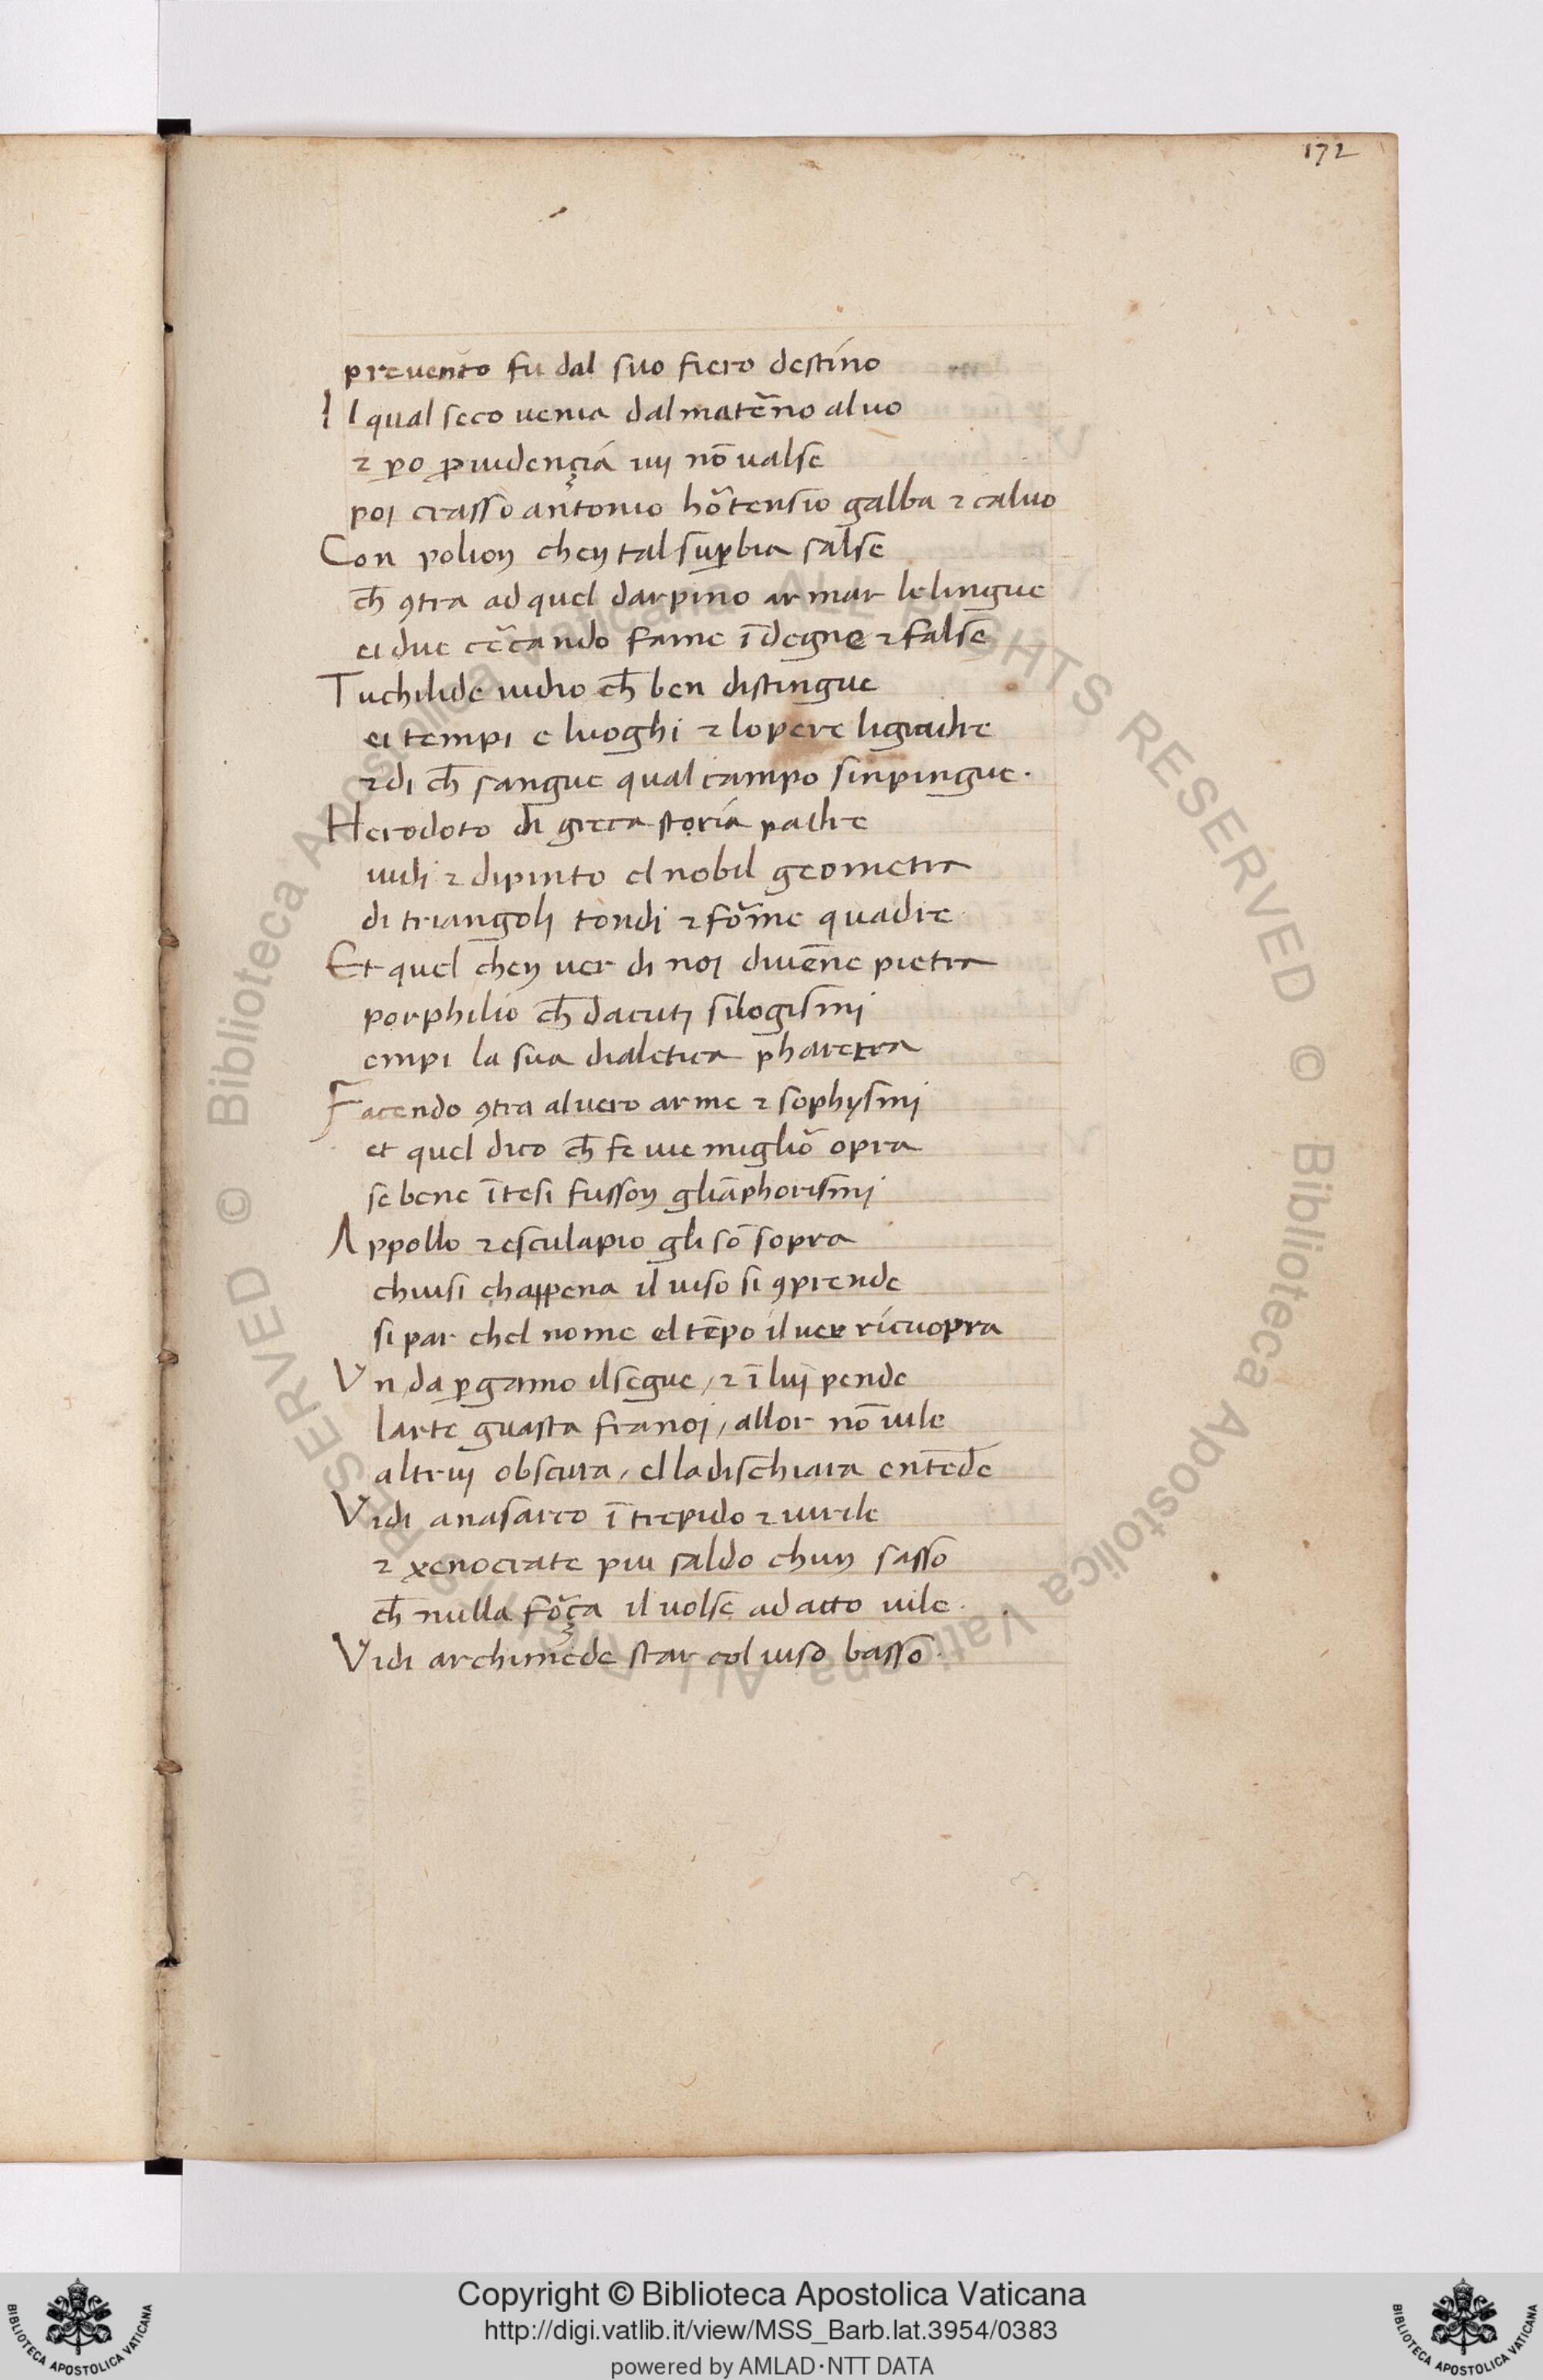 172
prevento fu dal suo fiero destino
Il qual seco venia dal mat̃no alvo
⁊ ꝑo ꝓvidençia vij nõ valse
poi crasso antonio hõtensio galba ⁊ calvo
Con polion chen tal suꝑbia salse
ch̄ ꝯtra ad quel darpino armar le lingue
ei due cẽcando fame ĩdegne ⁊ false
Tuchilide vidio ch̄ ben distingue
ei tempi e luoghi ⁊ lopere ligiadre
⁊ di ch̄ sangue qual campo sinpingue.
Herodoto di greca storia padre
vidi ⁊ dipinto el nobil geometra
di triangoli tondi ⁊ fõme quadre
Et quel chen ver di noi divẽne pietra
porphilio ch̄ dacuti silogismi
empi la sua dialetica pharetra
Facendo ꝯtra al vero arme ⁊ sophysmi
et quel dico ch̄ fe vie migliõ opra
se bene ĩtesi fusson gliãphorismi
Appollo ⁊ esculapio gli sõ sopra
chiusi chappena il viso si ꝯprende
si par chel nome el tẽpo il ver ricuopra
Un da ꝑgamo il segue / ⁊ ĩ lui pende
larte guasta fra noi / allor nõ vile
altrui obscura / el la dischiara entẽde
Vidi anasarco ĩtrepido ⁊ virile
⁊ xenocrate piu saldo chun sasso
ch̄ nulla fõça il volse ad atto vile.
Vidi archimede star col viso basso.
© Biblioteca Apostolica Vaticana ALL RIGHTS RESERVED © Biblioteca Apostolica Vaticana ALL RIGHTS RESERVED
BIBLIOTECA APOSTOLICA VATICANA
Copyright © Biblioteca Apostolica Vaticana
http://digi.vatlib.it/view/MSS_Barb.lat.3954/0383
powered by AMLAD·NTT DATA
BIBLIOTECA APOSTOLICA VATICANA